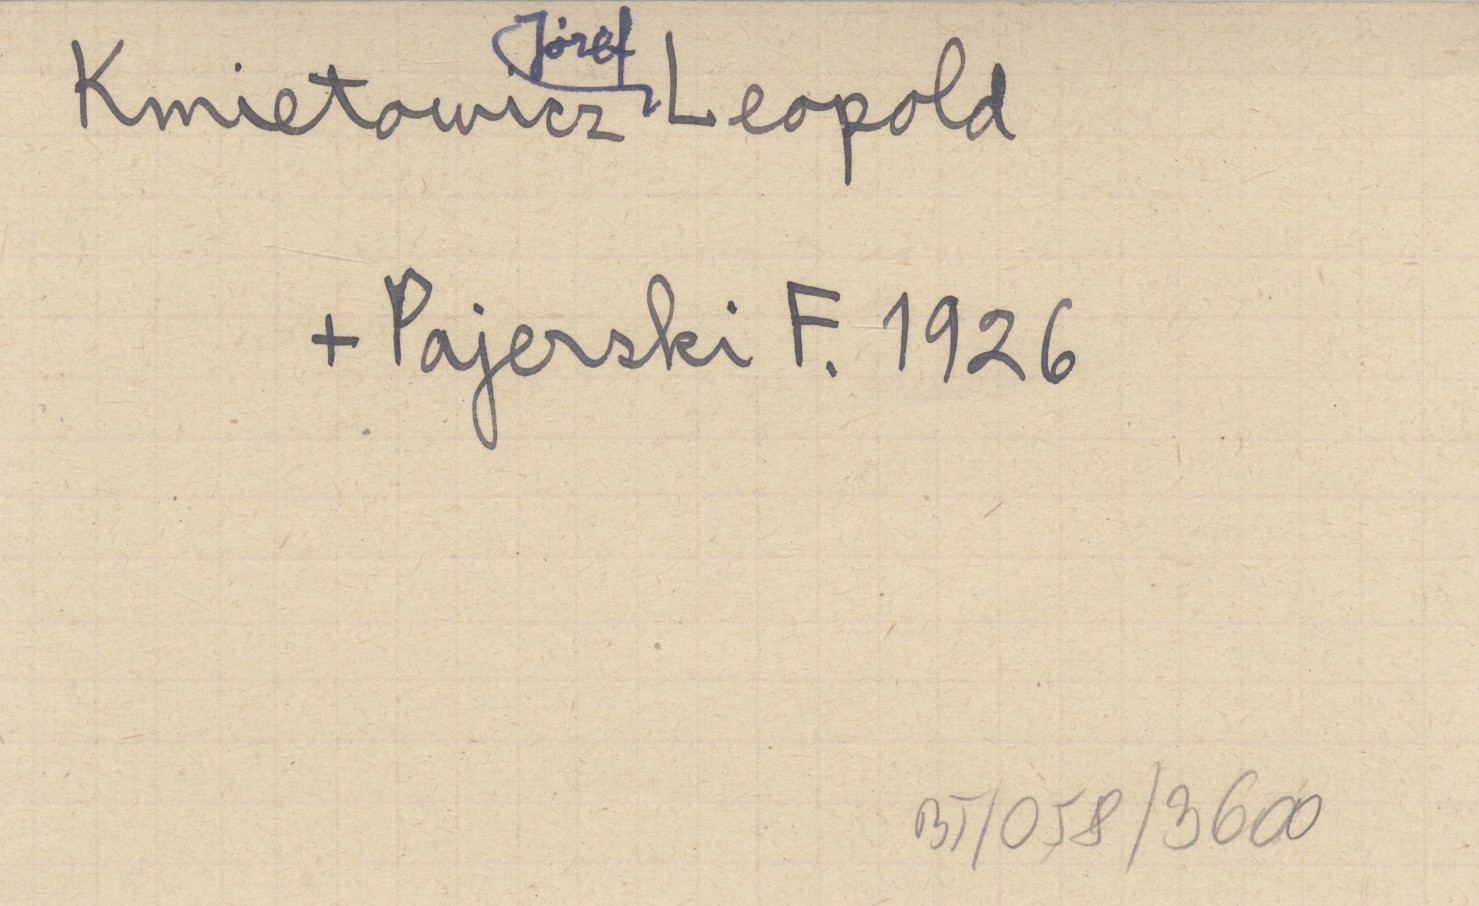 Kmietowicz Józef Leopold
+ Pajerski F. 1926
BT/058/3600